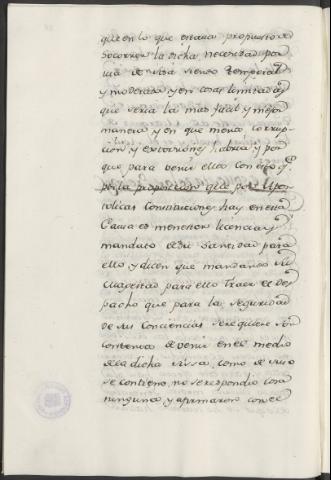 que en lo que estava propuesto de
socorrer la dicha necesidad por
via de sisa siendo temporal
y moderada y en cosas limitadas
que seria la mas facil y mejor
manera y en que menos corrup-
cion y extorciones habra y por
que para venir ellos con esto q.
por la proposicion que por Apos-
tolicas Constituciones hay en esta
Causa es menester licencia y
mandato de su Santidad para
ello y dicen que mandando su
Magestad para ello traer el des
pacho que para la seguridad
de sus Conciencias se requiere son
contentos de venir en el medio
de la dicha sissa, como de suso
se contiene, no se respondio cosa
ninguna, y afirmaron con el